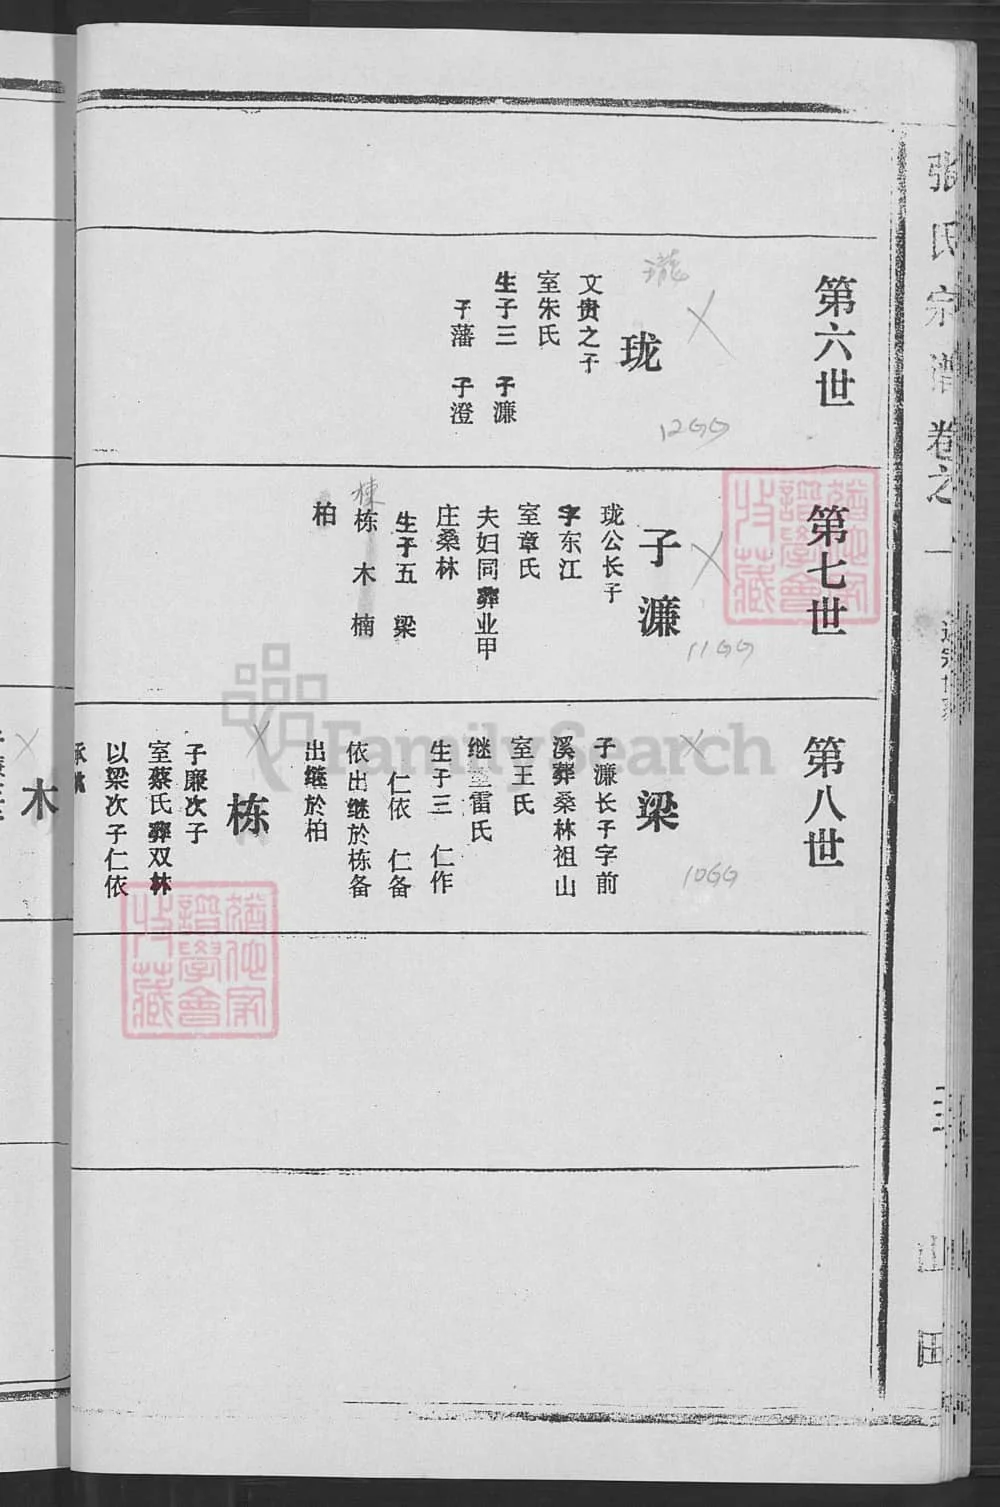 张氏宗谱卷之一
山田
第六世
珑
瓏
文贵之子
室朱氏
生子三 子濂
子藩 子澄
12GG
第七世
子濂
珑公长子
字东江
室章氏
夫妇同葬业甲
庄桑林
生子五 梁
栋 木 楠
棟
柏
11GG
第八世
梁
子濂长子字前
溪葬桑林祖山
室王氏
继室雷氏
生子三 仁作
仁依 仁备
依出继於栋备
出继於柏
10GG
栋
子廉次子
室蔡氏葬双林
以梁次子仁依
木
FamilySearch
犹他家
谱學會
收藏
犹他家
谱學會
收藏